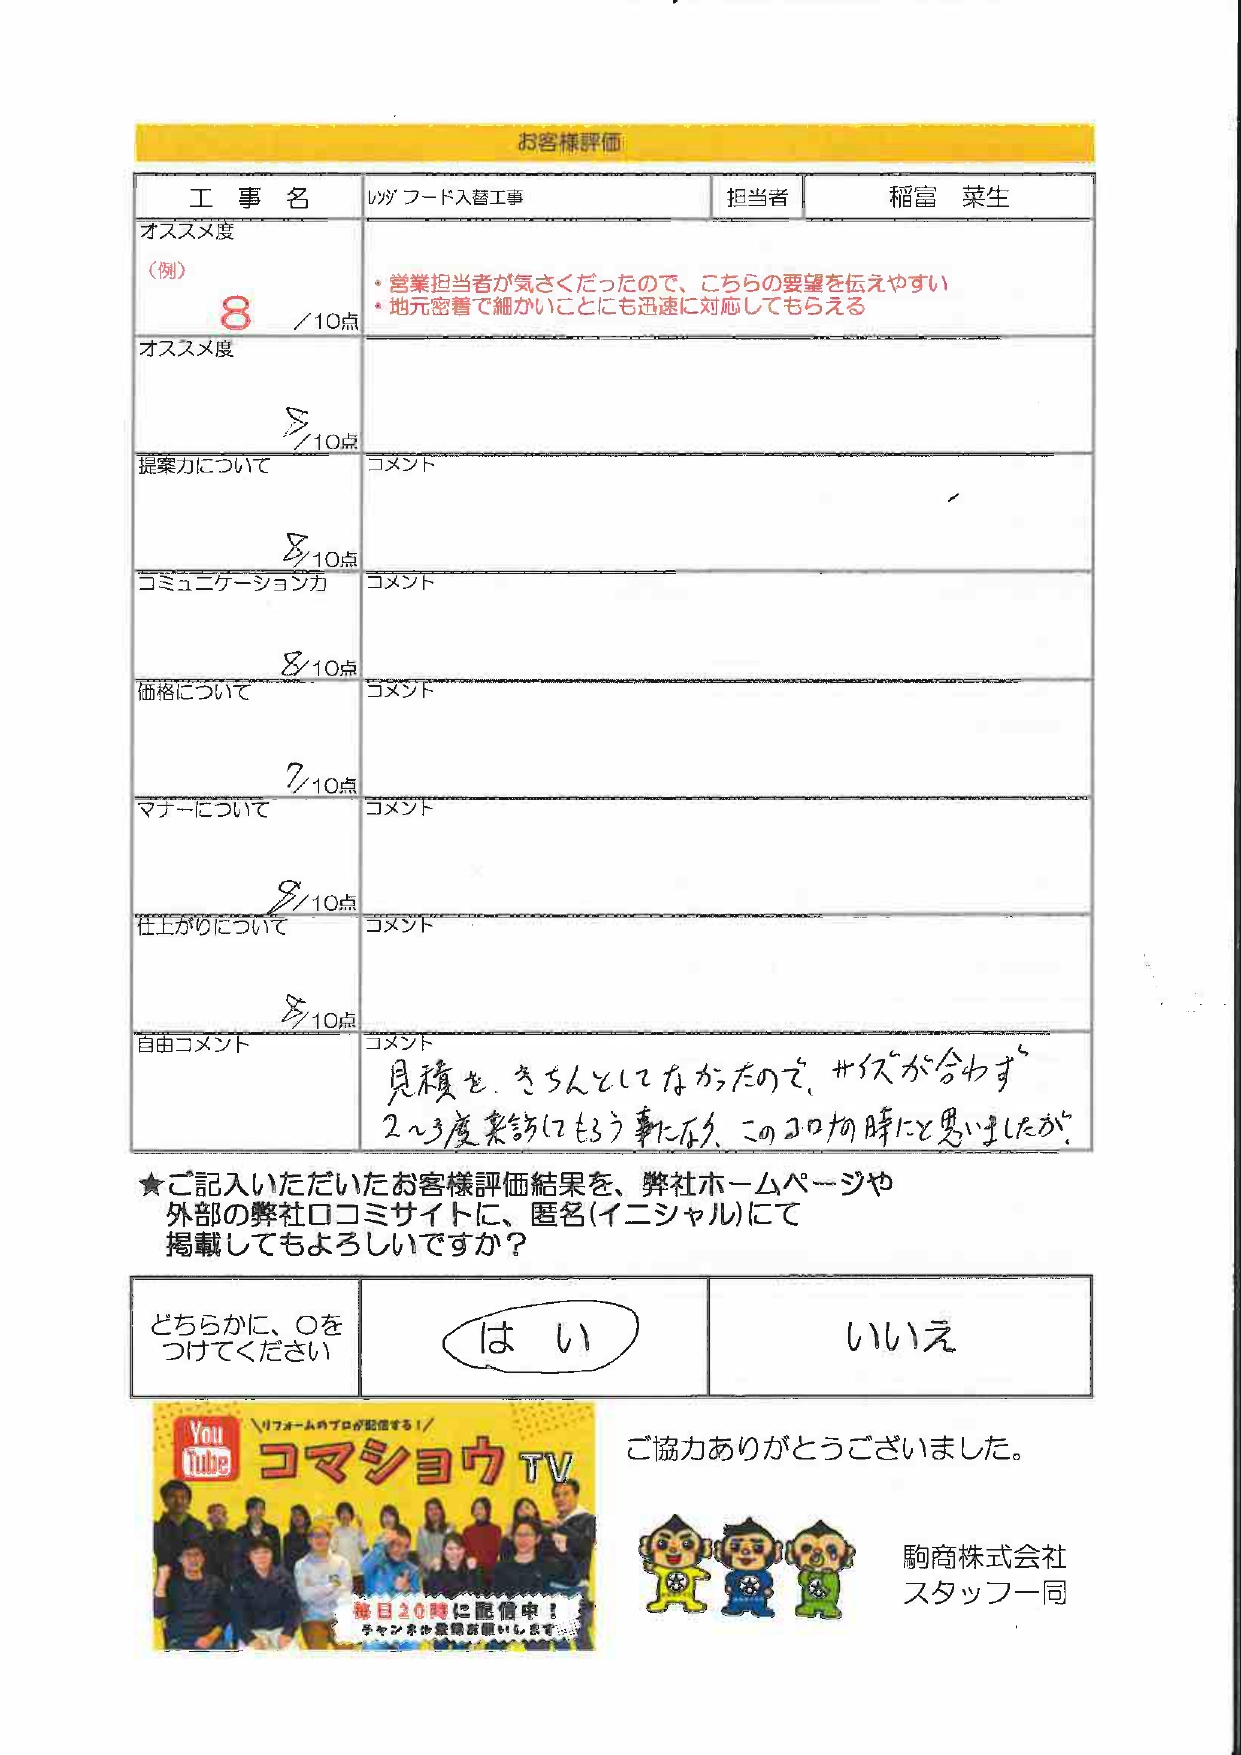 お客様評価
工 事 名 ﾚﾝｼﾞフード入替工事 担当者 稲富 菜生
オススメ度
（例）
8 ／10点
・営業担当者が気さくだったので、こちらの要望を伝えやすい
・地元密着で細かいことにも迅速に対応してもらえる
オススメ度
8/10点
提案力について コメント
8/10点
コミュニケーション力 コメント
8/10点
価格について コメント
7/10点
マナーについて コメント
9/10点
仕上がりについて コメント
8/10点
自由コメント コメント
見積を、きちんとしてなかったので、サイズが合わず
2〜3度来訪してもらう事になり、このコロナの時にと思いましたが、
★ご記入いただいたお客様評価結果を、弊社ホームページや
外部の弊社口コミサイトに、匿名(イニシャル)にて
掲載してもよろしいですか？
どちらかに、〇を
つけてください
は い
いいえ
You Tube
＼リフォームのプロが配信する！／
コマショウTV
毎日20時に配信中！
チャンネル登録お願いします
ご協力ありがとうございました。
駒商株式会社
スタッフ一同